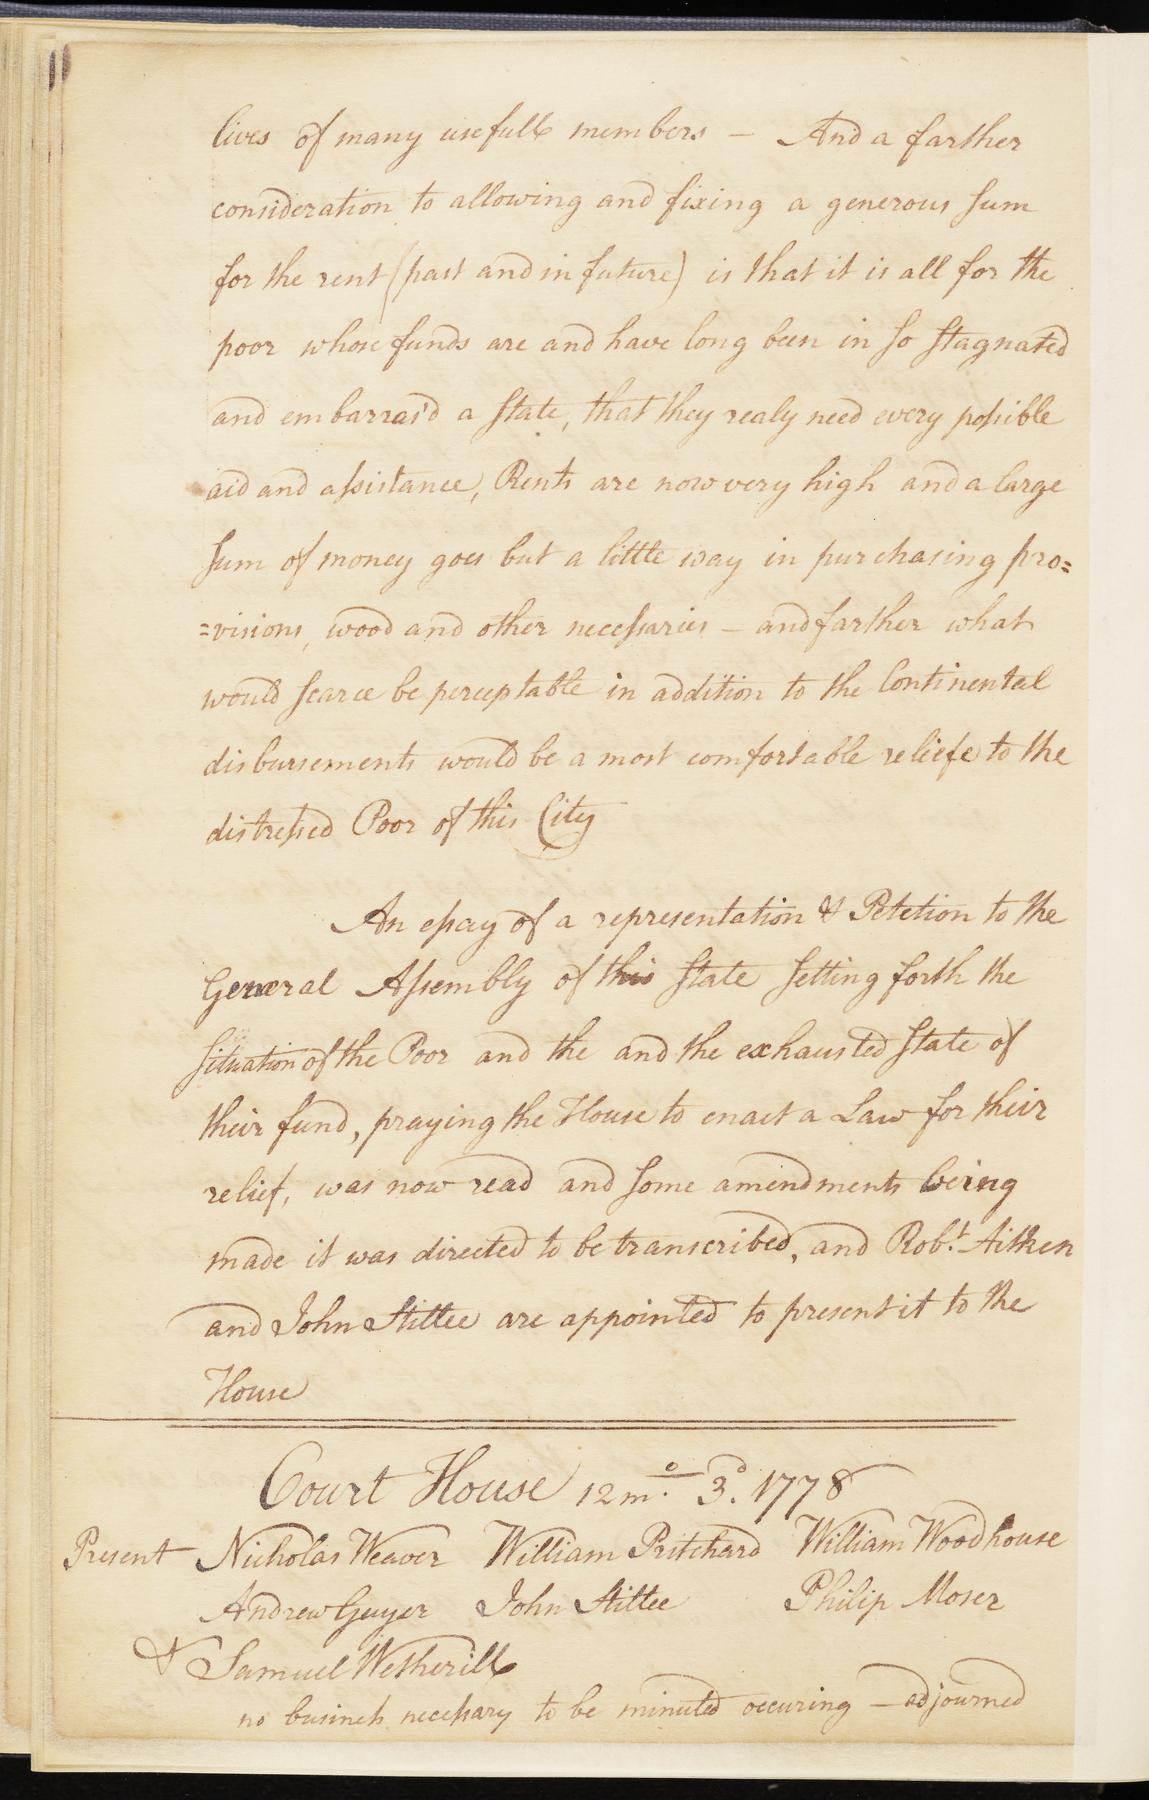 lives of many usefull members — And a farther
consideration to allowing and fixing a generous Sum
for the rent (past and in future) is that it is all for the
poor whose funds are and have long been in so stagnated
and embarras'd a State, that they realy need every possible
aid and assistance, Rents are now very high and a large
Sum of money goes but a little way in purchasing pro=
=visions, wood and other necessaries — and farther what
would scarce be perceptable in addition to the Continental
disbursements would be a most comfortable reliefe to the
distressed Poor of this City
An essay of a representation & Petetion to the
General Assembly of this State Setting forth the
Situation of the Poor and the and the exhausted State of
their fund, praying the House to enact a Law for their
relief, was now read and some amendments being
made it was directed to be transcribed, and Robt. Aitken
and John Stillee are appointed to present it to the
House
Court House 12mo. 3d. 1778
Present Nicholas Weaver William Pritchard William Woodhouse
Andrew Guyer John Stillee Philip Moser
& Samuel Wetherill
no business necessary to be minuted occuring — adjourned